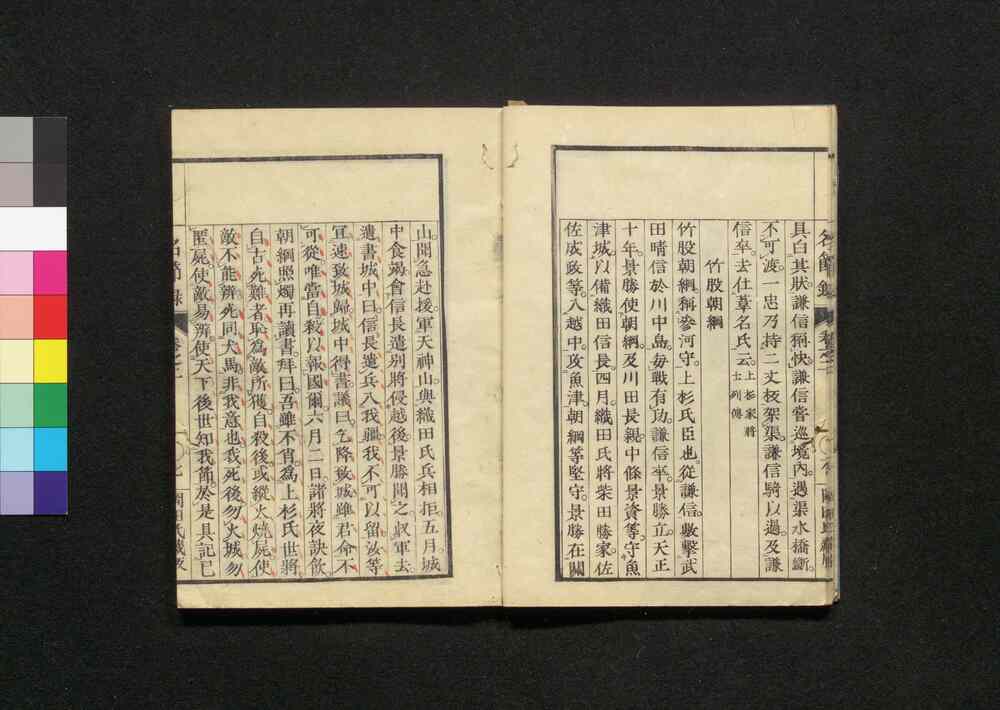 名節錄
具白其狀。謙信稱快。謙信嘗巡境內。遇渠水橋斷。
不可渡。一忠乃持二丈板架渠。謙信騎以過。及謙
信卒。去仕蒲生氏云。上杉家將
士列傳
竹股朝綱
竹股朝綱稱參河守。上杉氏臣也。從謙信。數擊武
田晴信於川中島。每戰有功。謙信卒。景勝立。天正
十年。景勝使朝綱及川田長親。中條景資等。守魚
津城。以備織田信長。四月織田氏將柴田勝家。佐
佐成政等。入越中。攻魚津。朝綱等堅守。景勝在關
山。聞急赴援。軍天神山。與織田氏兵相拒。五月。城
中食竭。會信長遣別將侵越後。景勝聞之。收軍去。
遺書城中曰。信長遣兵入我疆。我不可以留。汝等
宜速致城歸。城中得書議曰。乞降致城。雖君命。不
可從。唯當自殺以報國爾。六月二日。諸將夜訣飲。
朝綱照燭再讀書。拜曰。吾雖不肖。為上杉氏世將。
自古死難者。恥為敵所獲。自殺後或縱火燒屍。使
敵不能辨。死同犬馬。非我意也。我死後勿火城。勿
匿屍。使敵易辨。使天下後世知我節。於是具記己
名節錄